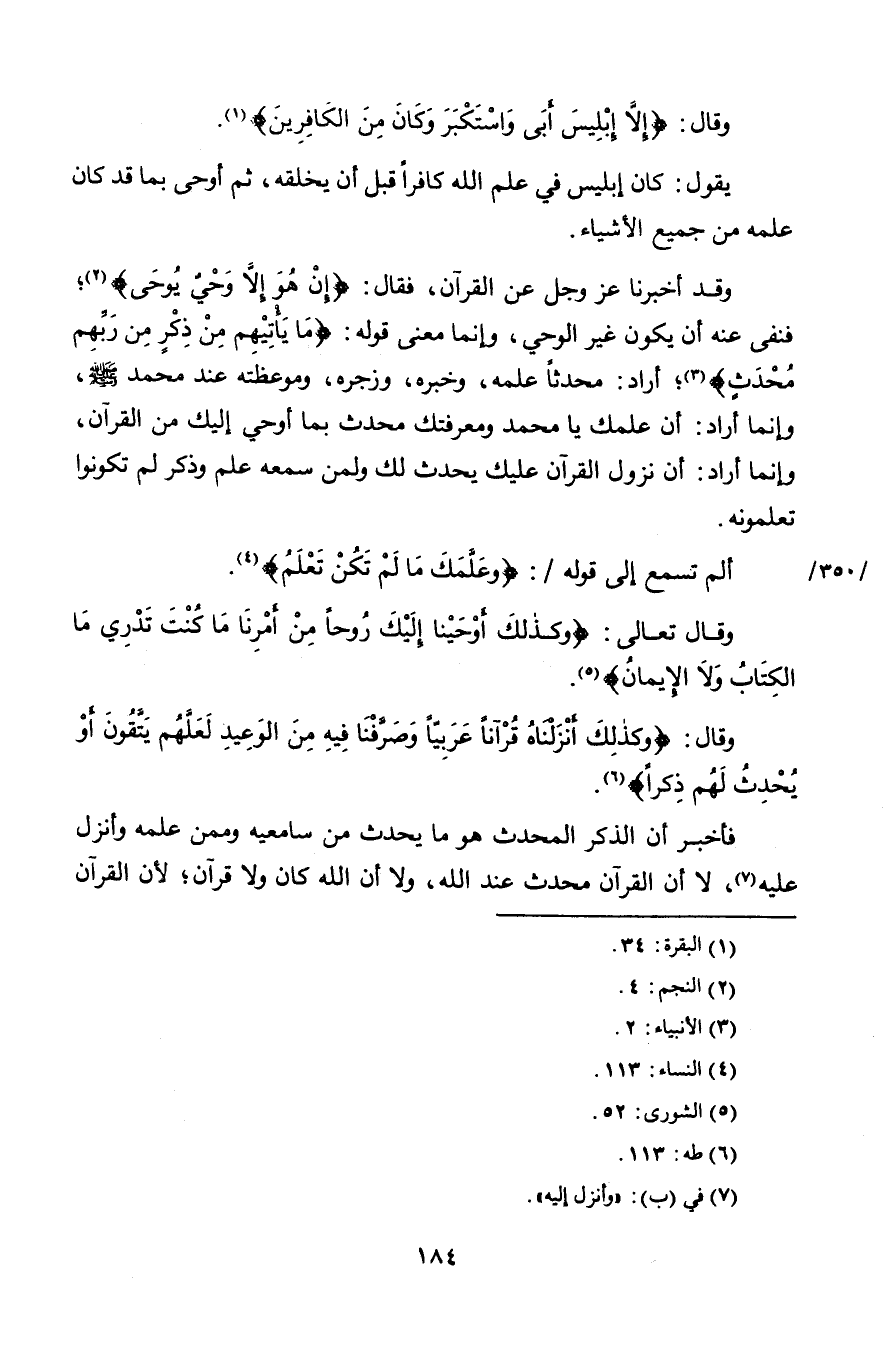 وقال: ﴿إِلَّا إِبْلِيسَ أَبَى وَاسْتَكْبَرَ وَكَانَ مِنَ الكَافِرِينَ﴾(١).
يقول: كان إبليس في علم الله كافراً قبل أن يخلقه، ثم أوحى بما قد كان
علمه من جميع الأشياء.
وقد أخبرنا عز وجل عن القرآن، فقال: ﴿إِنْ هُوَ إِلَّا وَحْيٌ يُوحَى﴾(٢)؛
فنفى عنه أن يكون غير الوحي، وإنما معنى قوله: ﴿مَا يَأْتِيْهِم مِنْ ذِكْرٍ مِن رَبِّهِم
مُحْدَثٍ﴾(٣)؛ أراد: محدثاً علمه، وخبره، وزجره، وموعظته عند محمد ﷺ،
وإنما أراد: أن علمك يا محمد ومعرفتك محدث بما أوحي إليك من القرآن،
وإنما أراد: أن نزول القرآن عليك يحدث لك ولمن سمعه علم وذكر لم تكونوا
تعلمونه.
/٣٥٠/ ألم تسمع إلى قوله /: ﴿وعَلَّمَكَ مَا لَمْ تَكُنْ تَعْلَمُ﴾(٤).
وقال تعالى: ﴿وكذٰلكَ أَوْحَيْنا إِلَيْكَ رُوحاً مِنْ أَمْرِنَا مَا كُنْتَ تَدْرِي مَا
الكِتَابُ وَلاَ الإِيمانُ﴾(٥).
وقال: ﴿وكذٰلِكَ أَنْزَلْنَاهُ قُرْآناً عَرَبِيّاً وَصَرَّفْنَا فِيهِ مِنَ الوَعِيدِ لَعَلَّهُم يَتَّقُونَ أَوْ
يُحْدِثُ لَهُم ذِكراً﴾(٦).
فأخبر أن الذكر المحدث هو ما يحدث من سامعيه وممن علمه وأنزل
عليه(٧)، لا أن القرآن محدث عند الله، ولا أن الله كان ولا قرآن؛ لأن القرآن
(١) البقرة: ٣٤.
(٢) النجم: ٤.
(٣) الأنبياء: ٢.
(٤) النساء: ١١٣.
(٥) الشورى: ٥٢.
(٦) طه: ١١٣.
(٧) في (ب): «وأنزل إليه».
١٨٤